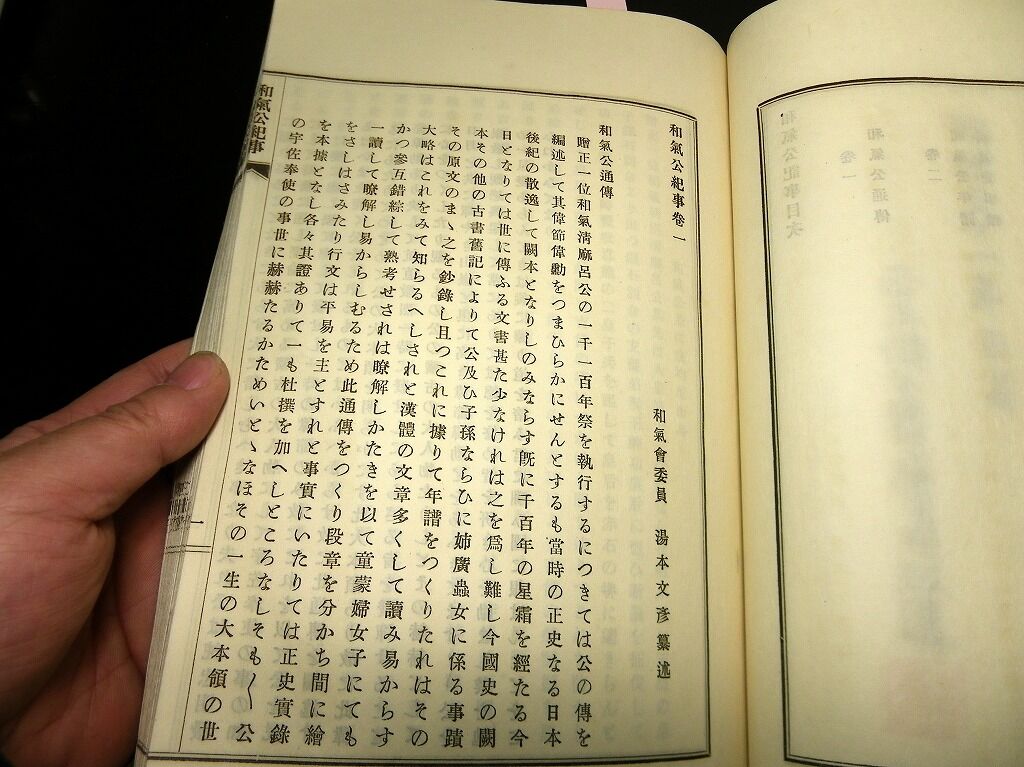 和氣公紀事卷一
和氣會委員　湯本文彦纂述
和氣公通傳
贈正一位和氣淸麻呂公の一千一百年祭を執行するにつきては公の傳を
編述して其偉節偉勳をつまひらかにせんとするも當時の正史なる日本
後紀の散逸して闕本となりしのみならす旣に千百年の星霜を經たる今
日となりては世に傳ふる文書甚た少なけれは之を爲し難し今國史の闕
本その他の古書舊記によりて公及ひ子孫ならひに姉廣蟲女に係る事蹟
その原文のまゝ之を鈔錄し且つこれに據りて年譜をつくりたれはその
大略はこれをみて知らるへしされと漢體の文章多くして讀み易からす
かつ參互錯綜して熟考せされは瞭解しかたきを以て童蒙婦女子にても
一讀して瞭解し易からしむるため此通傳をつくり段章を分かち間に繪
をさしはさみたり行文は平易を主とすれと事實にいたりては正史實錄
を本據となし各々其證ありて一も杜撰を加へしところなしそも〳〵公
の宇佐奉使の事世に赫赫たるかためいとゝなほその一生の大本領の世
和氣公紀事
一
和氣公記事目次
卷一
和氣公通傳
卷二